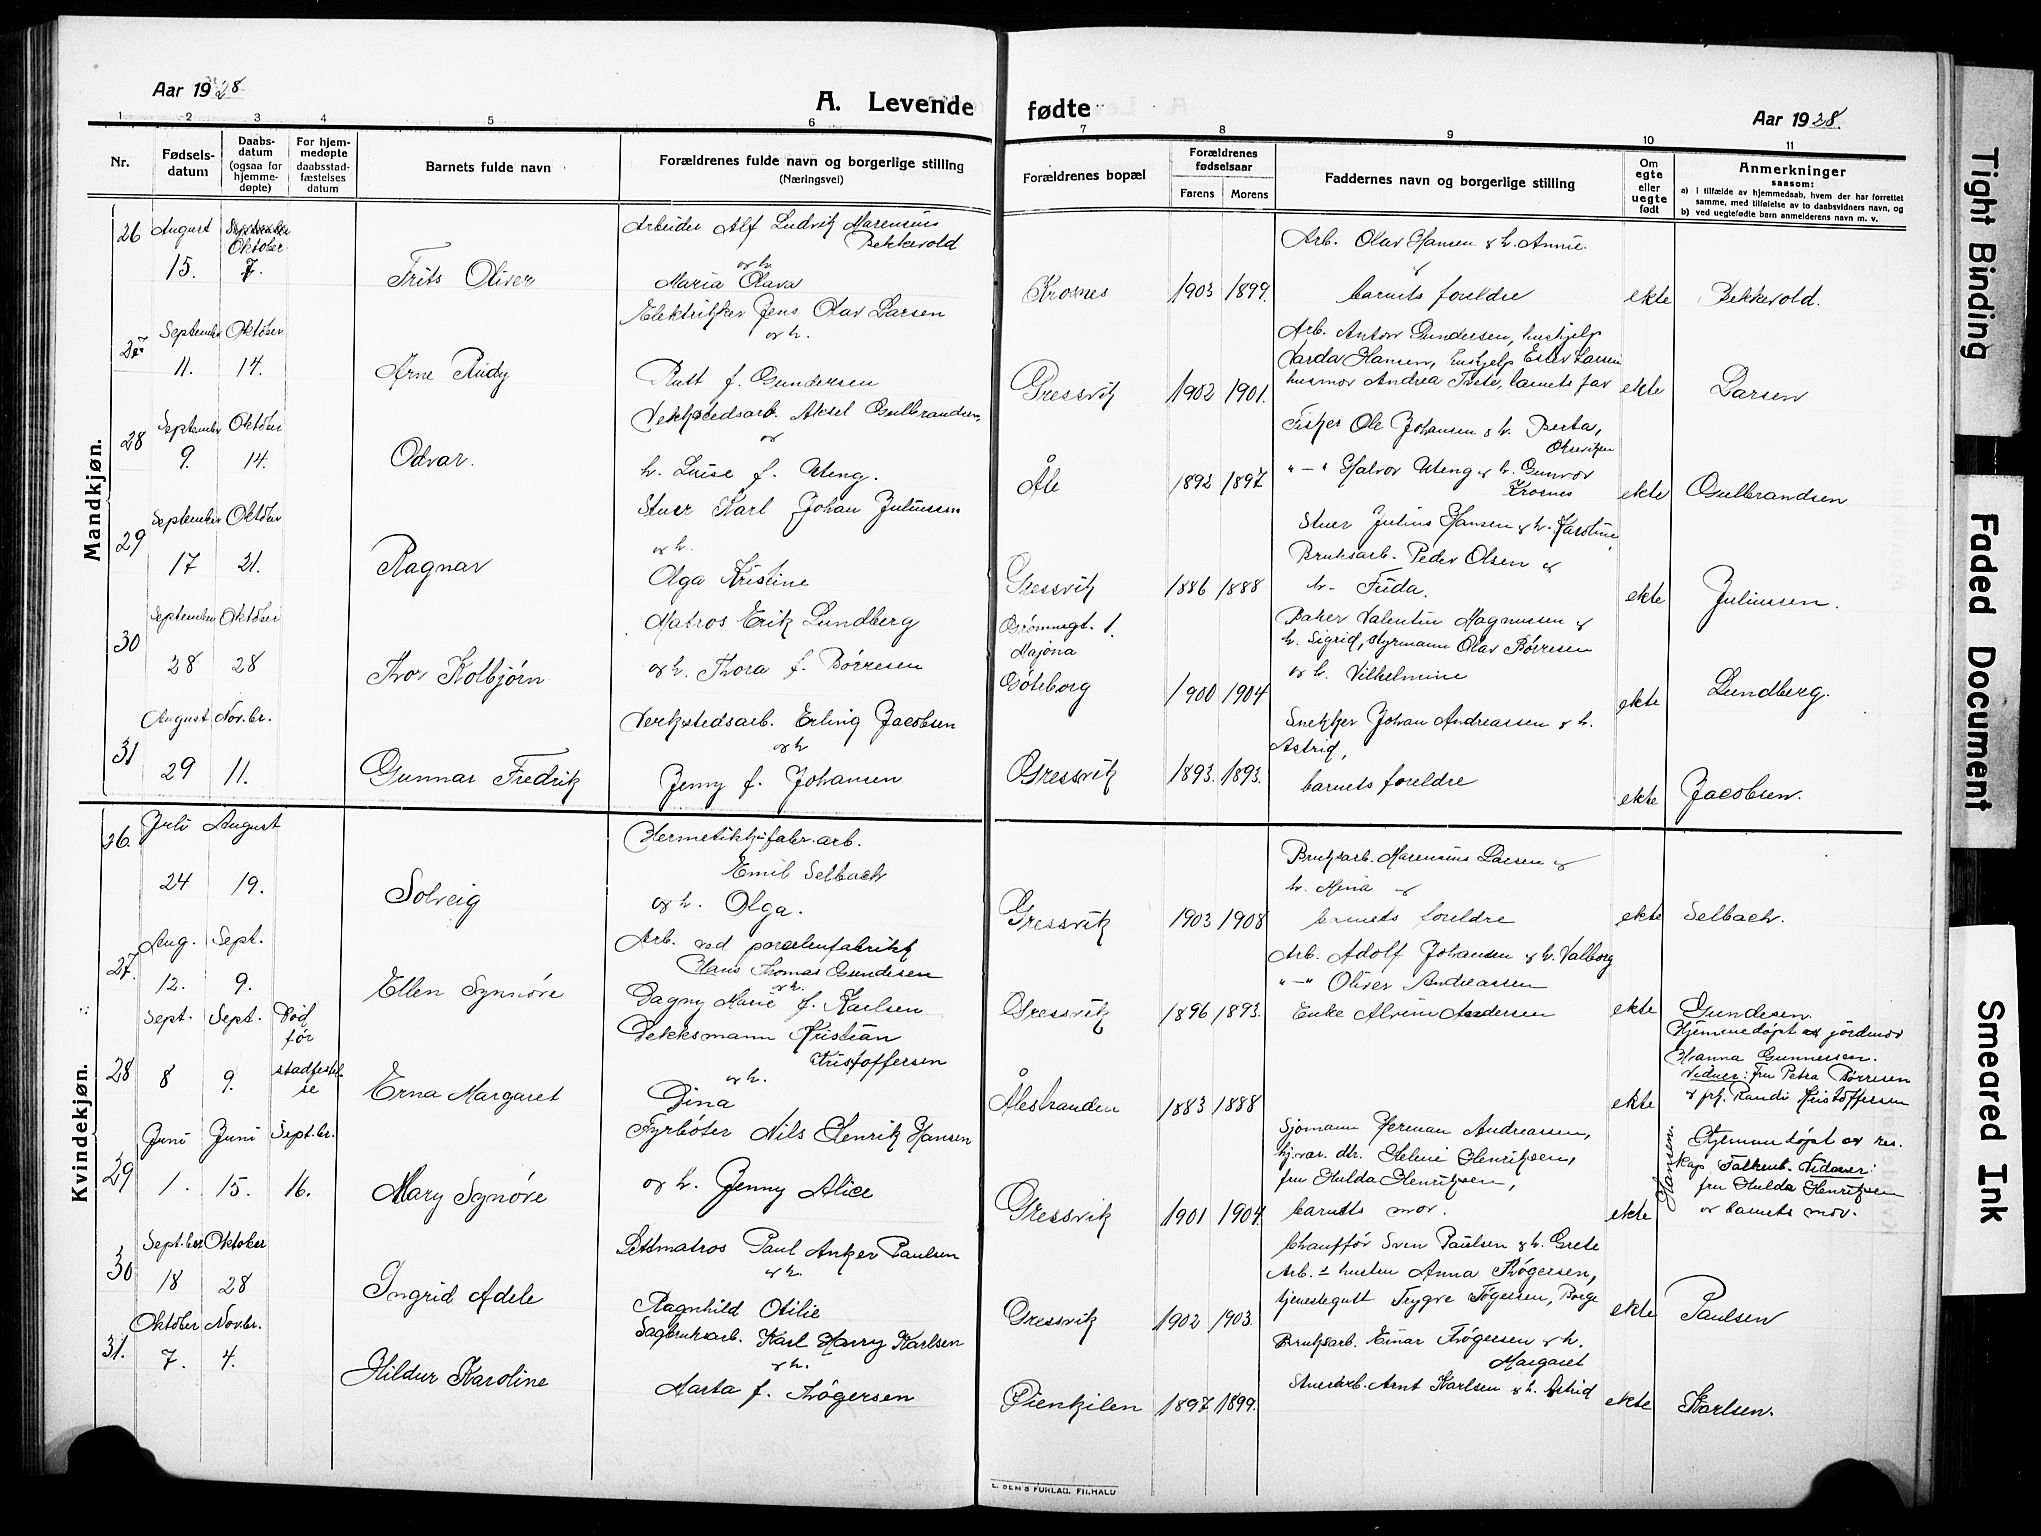 Aar 1928
A. Levende
fødte
Aar 1928.
1 2 3 4 5 6 7 8 9 10 11
Nr.
Fødsels-
datum
Daabs-
datum
(ogsaa for
hjemme-
døpte)
For hjem-
medøpte
daabsstad-
fæstelses
datum
Barnets fulde navn
Forældrenes fulde navn og borgerlige stilling
(Næringsvei)
Forældrenes bopæl
Forældrenes
fødselsaar
Farens Morens
Faddernes navn og borgerlige stilling
Om
egte
eller
uegte
født
Anmerkninger
saasom:
a) i tilfælde av hjemmedaab, hvem der har forrettet
samme, med tilføielse av to daabsvidners navn, og
b) ved uegtefødte barn anmelderens navn m. v.
Mandkjøn.
26
August
15.
Oktober
7.
Frits Oliver
Arbeider Alf Ludvik Marensius
Bekkevold
og h.
Maria Olava
Krosnes
1903 1899.
Arb. Olav Hansen & h. Annie
&
barnets foreldre
ekte
Bekkevold.
27
September
11.
Oktober
14.
Arne Rudy
Elektriker Jens Olav Larsen
og h.
Rutt f. Gundersen
Gressvik
1902 1901.
Arb. Anton Gundersen, hushjelp
Varda Hansen, hushjelp Ester Larsen
husmor Andrea Tvete, barnets far
ekte
Larsen
28
September
9.
Oktober
14.
Odvar.
Vekstedsarb. Aksel Gulbrandsen
og
h. Luise f. Uteng.
Åle
1892 1897
Fisker Ole Johansen & h. Berta,
Olseviken
"—" Halvor Uteng & h. Gunvor
Krosnes
ekte
Gulbrandsen
29
September
17
Oktober
21.
Ragnar
Stuer Karl Johan Juliussen
og h.
Olga Kristine
Gressvik
1886 1888
Stuer Julius Hansen & h. Karoline,
Bruksarb. Peder Olsen &
h. Frida.
ekte
Juliussen.
30
September
28
Oktober
28
Thor Kolbjørn
Matros Erik Lundberg
og h. Thora f. Børresen
1.
Majona
Göteborg
1900 1904
Baker Valentin Magnussen &
h. Sigrid, styrmann Olav Børresen
og h. Vilhelmine
ekte
Lundberg.
31
August
29
Nov.br.
11.
Gunnar Fredrik
Verkstedsarb. Erling Jacobsen
og h
Jenny f. Johansen
Gressvik
1893. 1893.
Snekker Johan Andreassen & h.
Astrid,
barnets foreldre
ekte
Jacobsen.
Kvindekjøn.
26.
Juli
24
August
19.
Solveig
Hermetikkfabr.arb.
Emil Selbach
og h. Olga.
Gressvik
1903 1908
Bruksarb. Marensius Larsen &
h. Mina &
barnets foreldre
ekte
Selbach.
27.
Aug.
12.
Sept.
9.
Ellen Synnøve
Arb. ved porcelenfabrikk
Hans Thomas Gundesen
& h.
Dagny Marie f. Karlsen
Gressvik
1896 1893.
Arb. Adolf Johansen & h. Valborg
"—" Oliver Andreassen
Enke Alvine Andersen
ekte
Gundesen.
28
Sept.
8
Sept.
9.
Død
før
stadfestel-
se
Erna Margaret
Dekksmann Kristian
Kristoffersen
og h.
Dina
Ålestranden
1883 1888
ekte
Hjemmedøpt av jordmor
Hanna Gunnersen.
Vidner: fru Petra Børresen
& frk. Randi Kristoffersen
29
Juni
1.
Juni
15.
Sept.br.
16.
Mary Synøve
Fyrbøter Nils Henrik Hansen
og h. Jenny Alice
Gressvik
1901 1904
Sjømann Herman Andreassen,
hj.vær. dtr. Helene Henriksen,
fru Hulda Henriksen,
barnets mor.
ekte
Hansen.
Hjemmedøpt av res.
kap Falkenb. Vidner:
fru Hulda Henriksen
og barnets mor.
30
Sept.ber
18
Oktober
28
Ingrid Adele
Lettmatros Paul Anker Paulsen
& h.
Ragnhild Otilie
Gressvik
1902 1903.
Chauffør Sven Paulsen & h. Grete
Arb. hustru Anna Thøgersen,
tjenestegutt Trygve Tøgersen, Borge
ekte
Paulsen
31.
Oktober
7.
Nov.br.
4.
Hildur Karoline
Sagbruksarb. Karl Harry Karlsen
& h.
Marta f. Thøgersen
Øienkilen
1897 1899.
Bruksarb. Einar Thøgersen & h.
Margaret
Stuerarb. Arnt Karlsen & h. Astrid
ekte
Karlsen.
E. SEM'S FORLAG. FR.HALD
Tight Binding
Faded Document
Smeared Ink